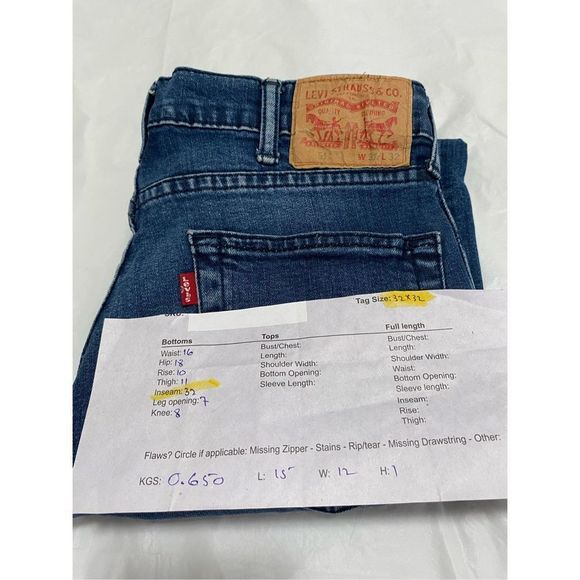 LEVI STRAUSS & CO.
ORIGINAL RIVETED
QUALITY CLOTHING
W 32 L 32
Tag Size: 32x32
Bottoms Tops Full length
Waist: 16 Bust/Chest: Bust/Chest:
Hip: 18 Length: Length:
Rise: 10 Shoulder Width: Shoulder Width:
Thigh: 11 Bottom Opening: Waist:
Inseam: 32 Sleeve Length: Bottom Opening:
Leg opening: 7 Sleeve length:
Knee: 8 Inseam:
Rise:
Thigh:
Flaws? Circle if applicable: Missing Zipper - Stains - Rip/tear - Missing Drawstring - Other:
KGS: 0.650 L: 15" W: 12 H: 1